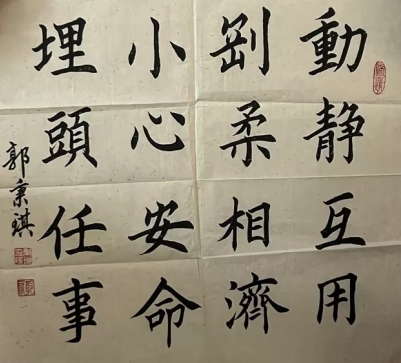 動静互用
剛柔相濟
小心安命
埋頭任事
郭秉琪